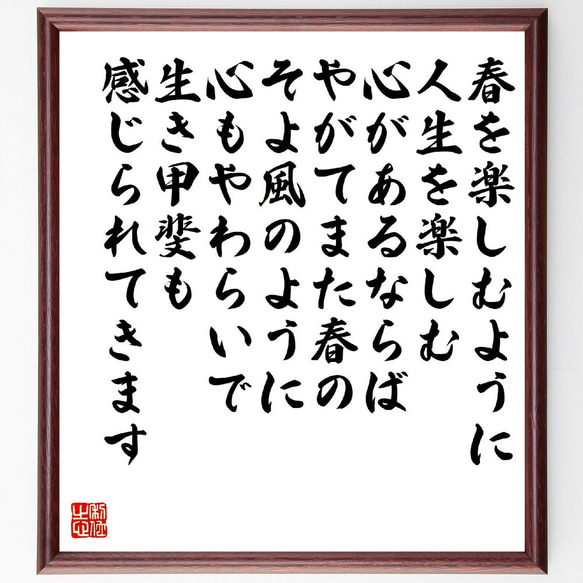 春を楽しむように
人生を楽しむ
心があるならば
やがてまた春の
そよ風のように
心もやわらいで
生き甲斐も
感じられてきます